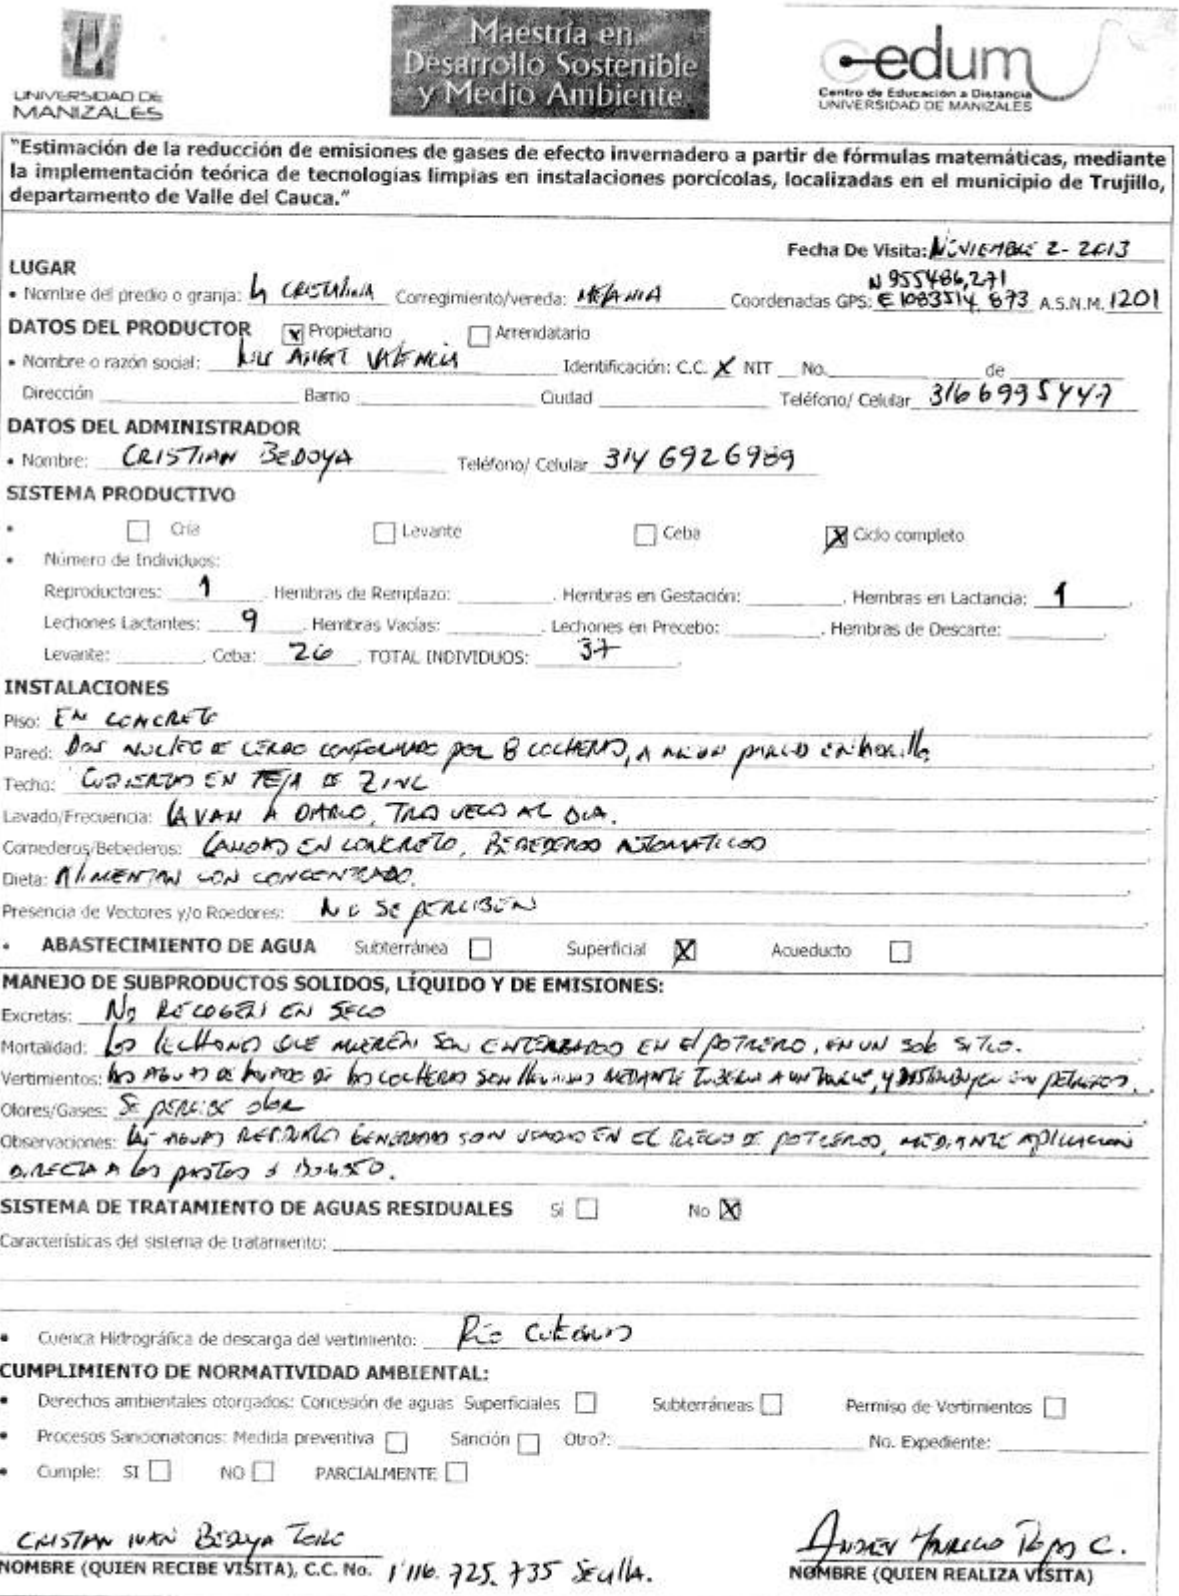 UNIVERSIDAD DE
MANIZALES
Maestría en
Desarrollo Sostenible
y Medio Ambiente
edum
Centro de Educación a Distancia
UNIVERSIDAD DE MANIZALES
"Estimación de la reducción de emisiones de gases de efecto invernadero a partir de fórmulas matemáticas, mediante
la implementación teórica de tecnologías limpias en instalaciones porcícolas, localizadas en el municipio de Trujillo,
departamento de Valle del Cauca."
Fecha De Visita: NOVIEMBRE 2-2013
LUGAR
N 955486,271
• Nombre del predio o granja: LA CRISTALINA Corregimiento/vereda: Coordenadas GPS: E 1083514,873 A.S.N.M. 1201
DATOS DEL PRODUCTOR X Propietario Arrendatario
• Nombre o razón social: ANGEL VALENCIA Identificación: C.C. X NIT No. de
Dirección Barrio Ciudad Teléfono/ Celular 316 6995447
DATOS DEL ADMINISTRADOR
• Nombre: CRISTIAN BEDOYA Teléfono/ Celular 314 6926989
SISTEMA PRODUCTIVO
• Cría Levante Ceba X Ciclo completo
• Número de Individuos:
Reproductores: 1. Hembras de Remplazo: . Hembras en Gestación: . Hembras en Lactancia: 1.
Lechones Lactantes: 9. Hembras Vacías: . Lechones en Precebo: . Hembras de Descarte:
Levante: . Ceba: 26. TOTAL INDIVIDUOS: 37.
INSTALACIONES
Piso: EN CONCRETO
Pared: DOS NUCLEO DE CERDO CONFORMADO POR 8 COCHERAS, A
Techo: CUBIERTAS EN TEJA DE ZINC
Lavado/Frecuencia: LAVAN A DIARIO, TRES VECES AL DIA.
Comederos/Bebederos: CANOAS EN CONCRETO, BEBEDEROS AUTOMATICOS
Dieta: ALIMENTAN CON CONCENTRADO.
Presencia de Vectores y/o Roedores: NO SE PERCIBEN
• ABASTECIMIENTO DE AGUA Subterránea Superficial X Acueducto
MANEJO DE SUBPRODUCTOS SOLIDOS, LÍQUIDO Y DE EMISIONES:
Excretas: NO RECOGEN EN SECO
Mortalidad: LOS LECHONES QUE MUEREN SON ENTERRADOS EN EL POTRERO, EN UN SOLO SITIO.
Vertimientos: LAS AGUAS DE LAVADO DE LAS COCHERAS SON MEDIANTE TUBERIA A UN TANQUE, Y DISTRIBUYEN EN POTREROS.
Olores/Gases: SE PERCIBE OLOR
Observaciones: LAS AGUAS RESIDUALES GENERADAS SON USADAS EN EL RIEGO DE POTREROS, MEDIANTE APLICACION
DIRECTA A LOS PASTOS
SISTEMA DE TRATAMIENTO DE AGUAS RESIDUALES Si No X
Características del sistema de tratamiento:
• Cuenca Hidrográfica de descarga del vertimiento: Río
CUMPLIMIENTO DE NORMATIVIDAD AMBIENTAL:
• Derechos ambientales otorgados: Concesión de aguas Superficiales Subterráneas Permiso de Vertimientos
• Procesos Sancionatorios: Medida preventiva Sanción Otro?: No. Expediente:
• Cumple: SI NO PARCIALMENTE
CRISTIAN IVAN BEDOYA
NOMBRE (QUIEN RECIBE VISITA), C.C. No. 1'116.725.735 Sevilla.
C.
NOMBRE (QUIEN REALIZA VISITA)